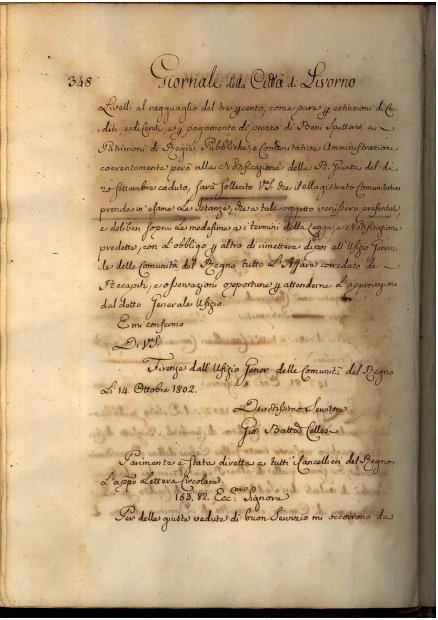 348 Giornale della Città di Livorno
Livelli al ragguaglio del tre p cento, come pure p estinzioni di Cre-
diti, e di Censi, e p pagamento di prezzo di Beni Spettanti a
Patrimonj di Regie, Pubbliche, e Comunitative Amministrazione
coerentemente però alla Notificazione della R. Giunta del dì
20 Settembre caduto, sarà sollecito V.S. che il Magistrato Comunitativo
prenda in esame le Istanze, che a tale oggetto venissero presentate,
e deliberi sopra le medesime a i termini della Legge, e Notificazione
predette, con l'obbligo p altro di rimettere dipoi all'Ufizio Genera-
le delle Comunità del Regno tutto l'Affare corredato de
Recapiti, e osservazioni opportune p attenderne l'approvazione
dal detto Generale Ufizio
E mi confermo
Di V.S.
Firenze dall'Ufizio Gener. delle Comunità del Regno
Li 14. Ottobre 1802.
Devotissimo Servitore
Gio: Batta
Parimente è stata diretta a tutti i Cancellieri del Regno
L'app.o Lettera Circolare
153. 82. Ecc.mo Signore
Per delle giuste vedute di buon Servizio mi occorrono da